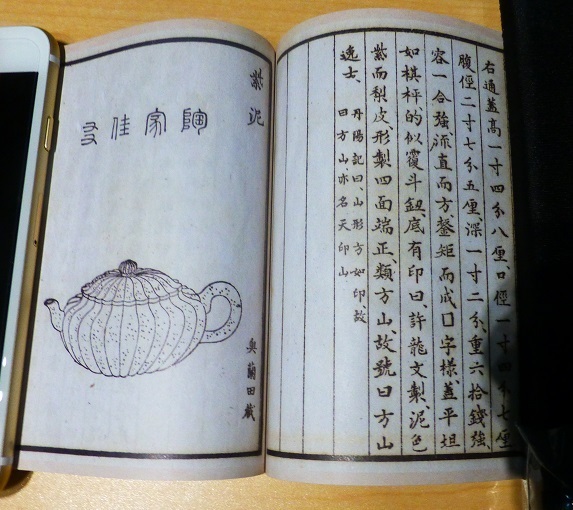 右通蓋高一寸四分八厘、口俓一寸四分七厘
腹俓二寸七分五厘、深一寸二分、重六拾錢強、
容一合強、流直而方、鋬矩而成口字樣、蓋平坦
如棋枰、的似覆斗鈕、底有印曰、許龍文製、泥色
紫而梨皮、形製四面端正、類方山、故號曰方山
逸士、
丹陽記曰、山形方如印故
曰方山亦名天印山
紫泥
陶家佳友
奥蘭田藏